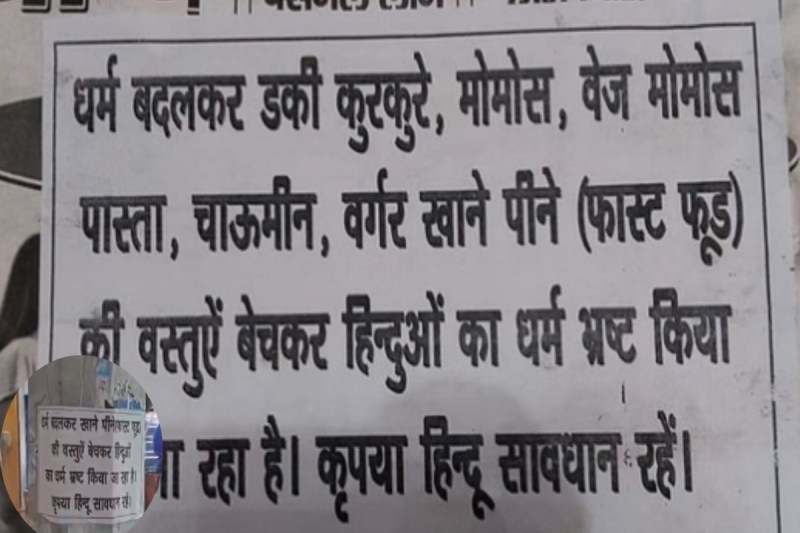 धर्म बदलकर डकी कुरकुरे, मोमोस, वेज मोमोस
पास्ता, चाऊमीन, वर्गर खाने पीने (फास्ट फूड)
की वस्तुऐं बेचकर हिन्दुओं का धर्म भ्रष्ट किया
रहा है। कृपया हिन्दू सावधान रहें।
धर्म बदलकर खाने पीने(फास्ट फूड)
की वस्तुऐं बेचकर हिन्दुओं
का धर्म भ्रष्ट किया जा रहा है।
कृपया हिन्दू सावधान रहें।